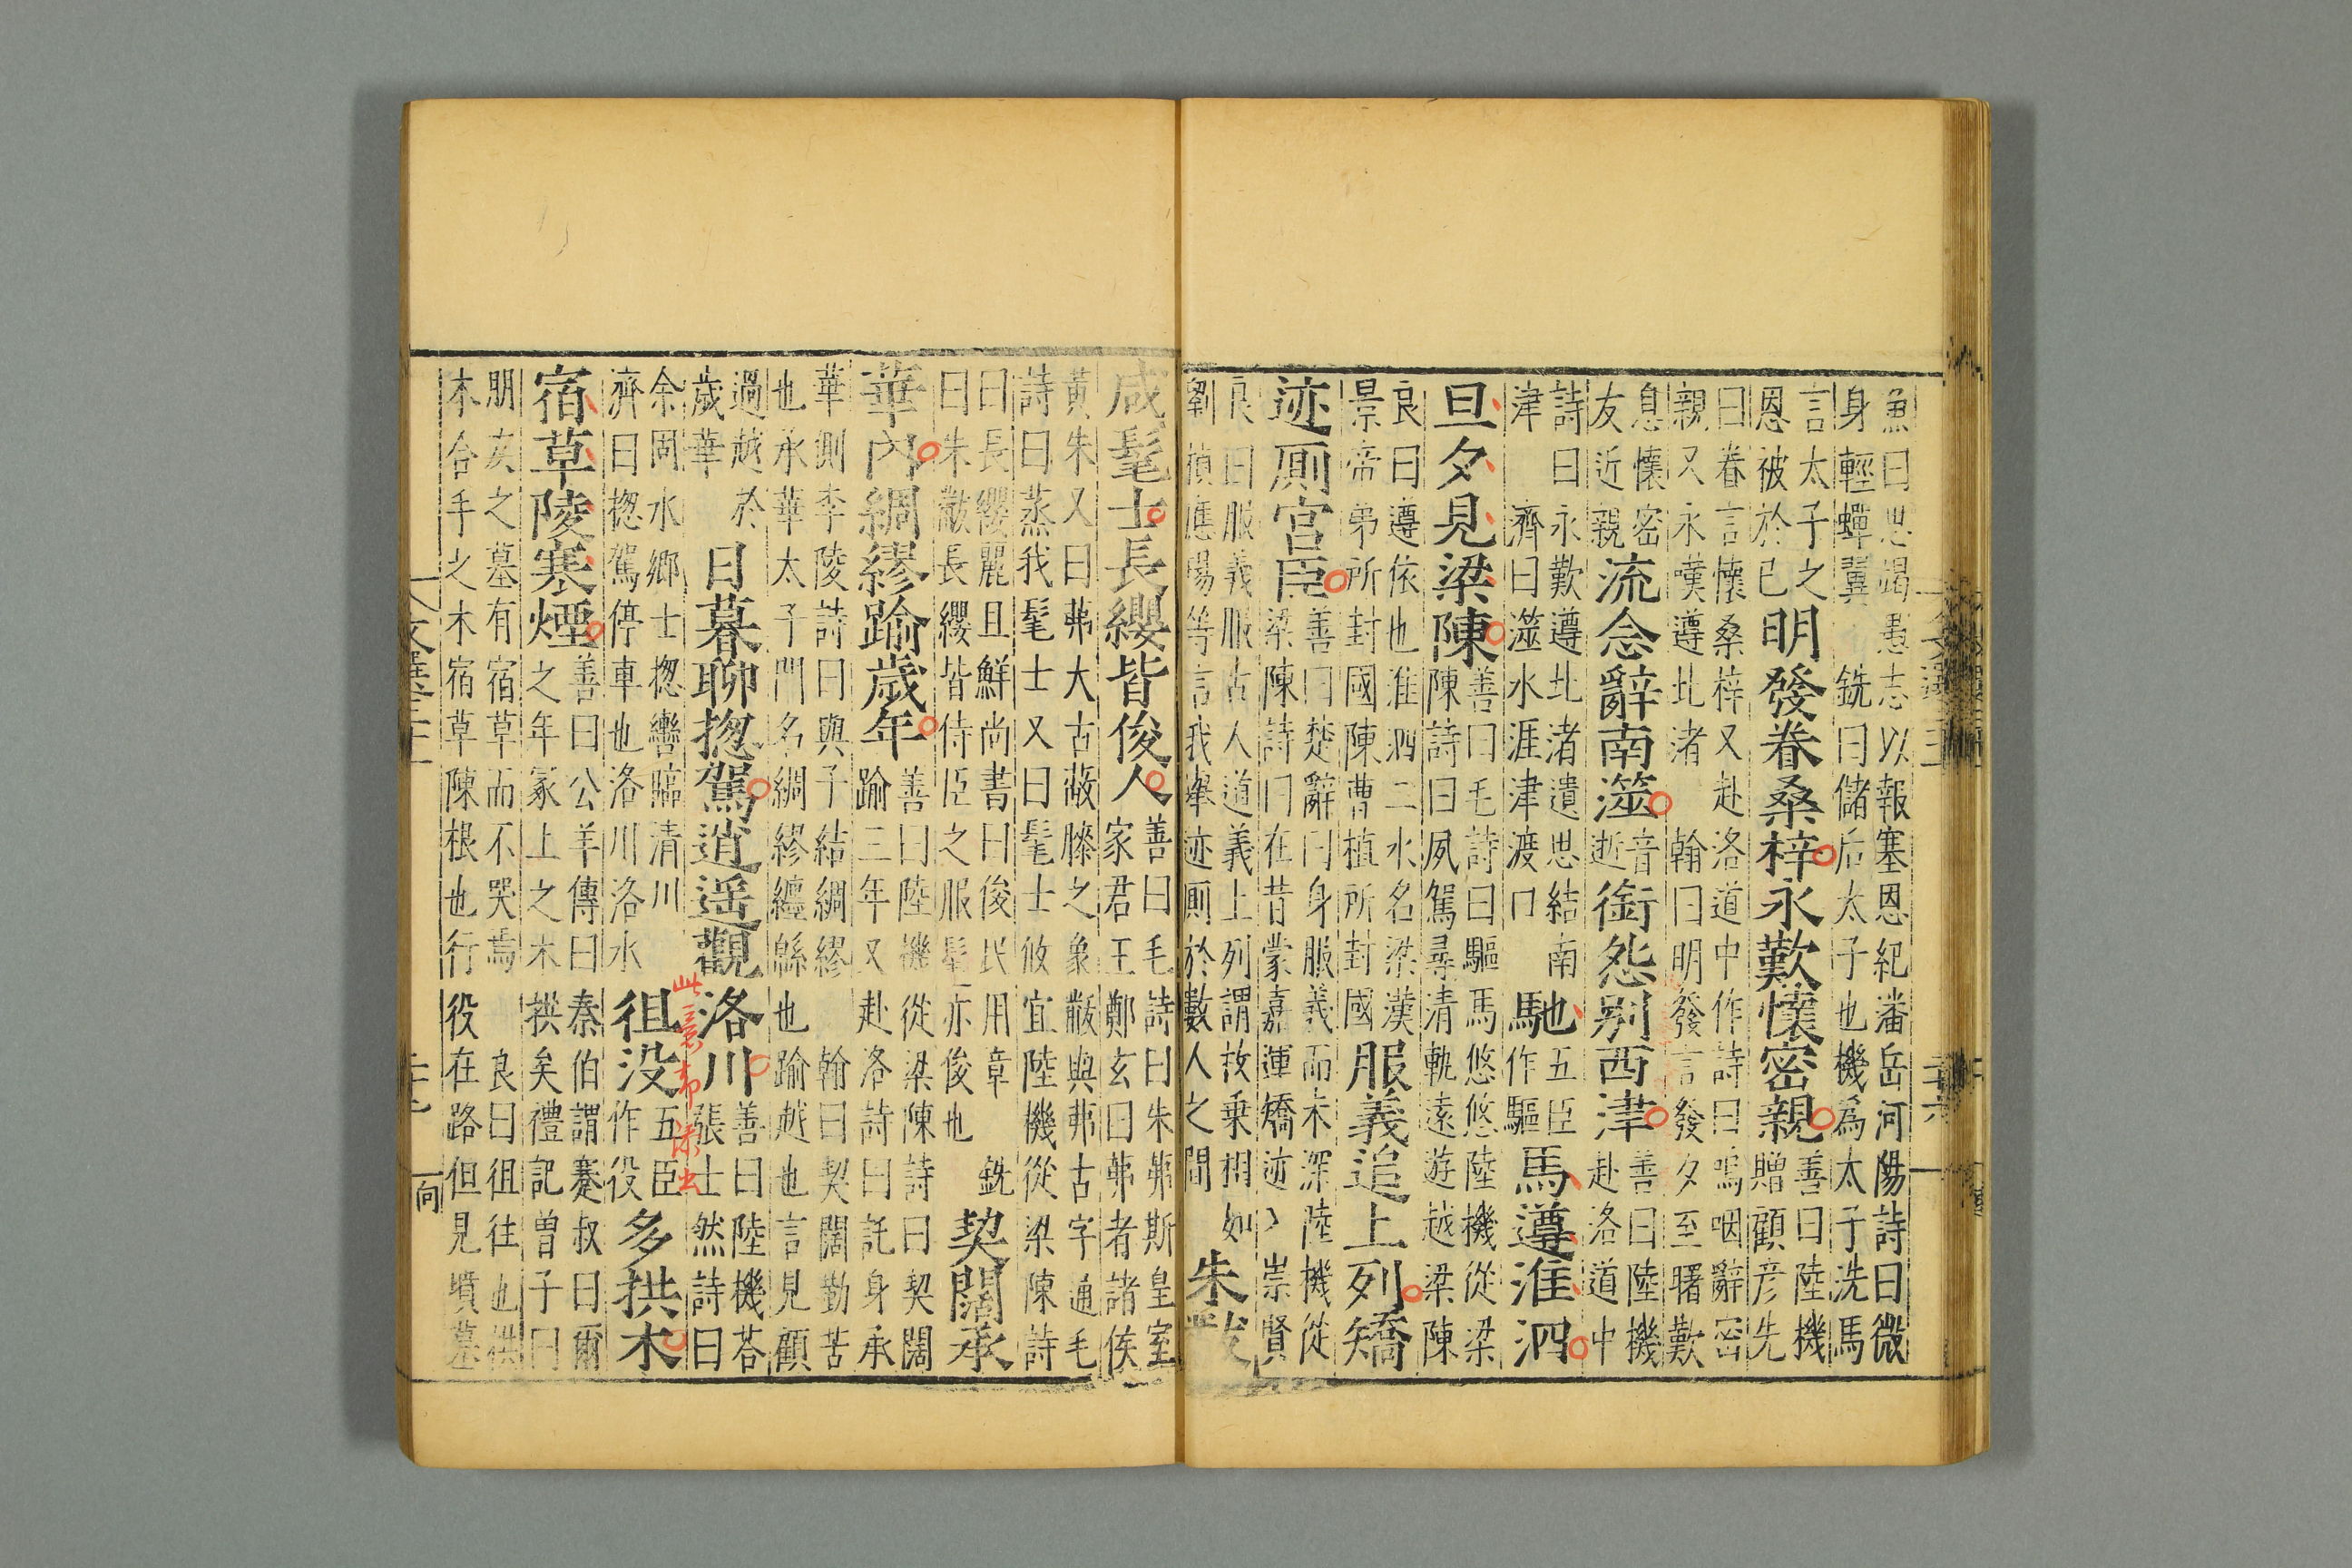 魚曰思竭愚志以報塞恩紀潘岳河陽詩曰微
身輕蟬翼 銑曰儲后太子也機為太子洗馬
言太子之
恩被於已
明發眷桑梓永歎懷密親
善曰陸機
贈顧彦先
曰眷言懷桑梓又赴洛道中作詩曰嗚咽辭密
親又永嘆遵北渚 翰曰明發言發夕至曙歎
息懷密
友近親
流念辭南澨
音
逝
銜怨别西津
善曰陸機
赴洛道中
詩曰永歎遵北渚遺思結南
津 濟曰澨水涯津渡口
馳
五臣
作驅
馬遵淮泗
旦夕見梁陳
善曰毛詩曰驅馬悠悠陸機從梁
陳詩曰夙駕尋清軌遠遊越梁陳
良曰遵依也淮泗二水名梁漢
景帝弟所封國陳曹植所封國
服義追上列矯
迹厠宮臣
善曰楚辭曰身服義而未深陸機從
梁陳詩曰在昔蒙嘉運矯迹入崇賢
良曰服義服古人道義上列謂故乗相如
劉楨應瑒等言我舉迹厠於數人之間
朱黻
咸髦士長纓皆俊人
善曰毛詩曰朱芾斯皇室
家君王鄭玄曰芾者諸侯
黃朱又曰芾大古蔽膝之象黻與芾古字通毛
詩曰蒸我髦士又曰髦士攸宜陸機從梁陳詩
曰長纓麗且鮮尚書曰俊民用章 銑
曰朱黻長纓皆侍臣之服髦亦俊也
契闊承
華內綢繆踰歲年
善曰陸機從梁陳詩曰契闊
踰三年又赴洛詩曰託身承
華側李陵詩曰與子結綢繆 翰曰契闊勤苦
也承華太子門名綢繆纏緜也踰越也言見顧
過越於
歲華
日暮聊揔駕逍遥觀洛川
善曰陸機荅
張士然詩曰
余固水鄉士揔轡臨清川
濟曰揔駕停車也洛川洛水
徂没
五臣
作役
多拱木
宿草陵寒煙
善曰公羊傳曰秦伯謂蹇叔曰爾
之年冢上之木拱矣禮記曾子曰
朋友之墓有宿草而不哭焉 良曰徂往也拱
木合手之木宿草陳根也行役在路但見墳墓
向